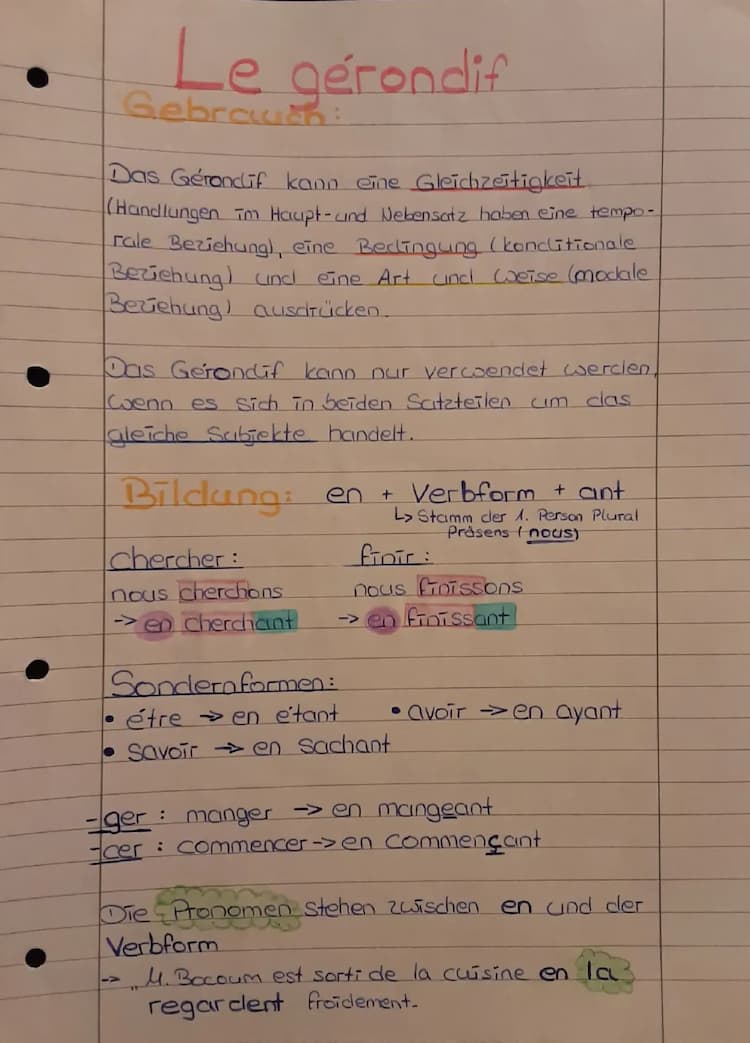 Le gérondif
Gebrauch:
Das Gérondif kann eine Gleichzeitigkeit
(Handlungen im Haupt- und Nebensatz haben eine tempo-
rale Beziehung), eine Bedingung (konditionale
Beziehung) und eine Art und Weise (modale
Beziehung) ausdrücken.
Das Gérondif kann nur verwendet werden,
wenn es sich in beiden Satzteilen um das
gleiche Subjekte handelt.
Bildung: en + Verbform + ant
↳ Stamm der 1. Person Plural
Präsens (nous)
chercher: finir:
nous cherchons nous finissons
→ en cherchant → en finissant
Sondernformen:
• étre → en étant • avoir → en ayant
• savoir → en sachant
-ger: manger → en mangeant
-cer: commencer → en commençant
Die Pronomen stehen zwischen en und der
Verbform
→ „M. Bocoum est sorti de la cuisine en la
regardent froidement.